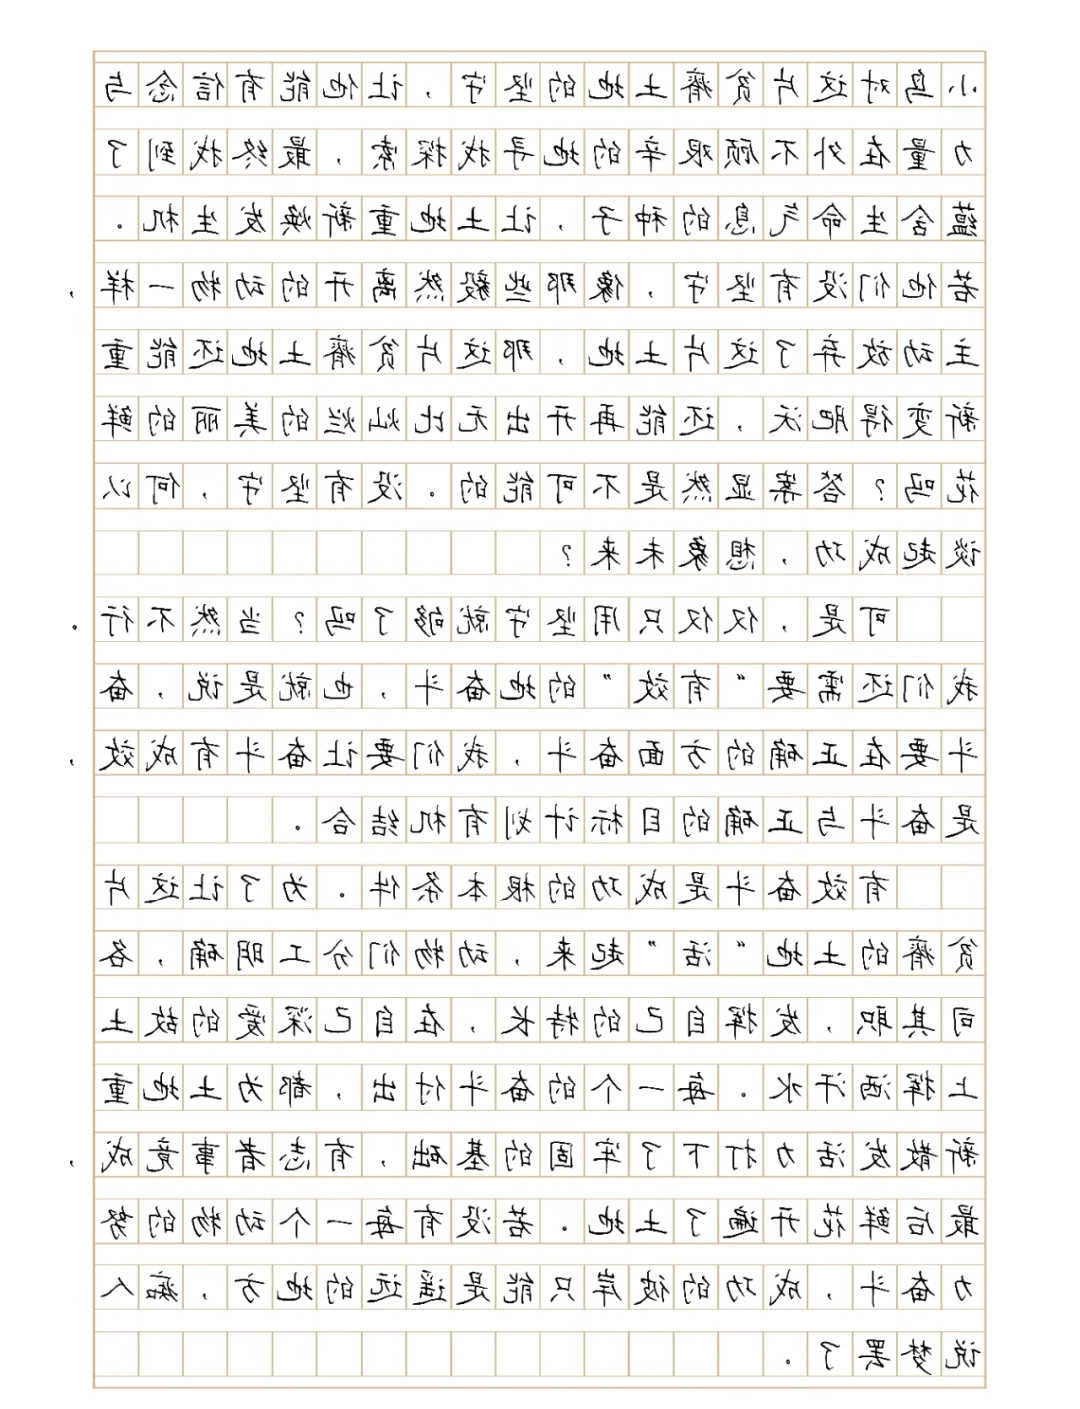 小鸟对这片贫瘠土地的坚守，让他能有信念与
力量在外不顾艰辛的地寻找探索，最终找到了
蕴含生命气息的种子，让土地重新焕发生机。
若他们没有坚守，像那些毅然离开的动物一样，
主动放弃了这片土地，那这片贫瘠土地还能重
新变得肥沃，还能再开出无比灿烂的美丽的鲜
花吗？答案显然是不可能的。没有坚守，何以
谈起成功，想象未来？
可是，仅仅只用坚守就够了吗？当然不行。
我们还需要“有效”的地奋斗，也就是说，奋
斗要在正确的方面奋斗，我们要让奋斗有成效，
是奋斗与正确的目标计划有机结合。
有效奋斗是成功的根本条件。为了让这片
贫瘠的土地“活”起来，动物们分工明确，各
司其职，发挥自己的特长，在自己深爱的故土
上挥洒汗水。每一个的奋斗付出，都为土地重
新散发活力打下了牢固的基础，有志者事竟成，
最后鲜花开遍了土地。若没有每一个动物的努
力奋斗，成功的彼岸只能是遥远的地方，痴人
说梦罢了。